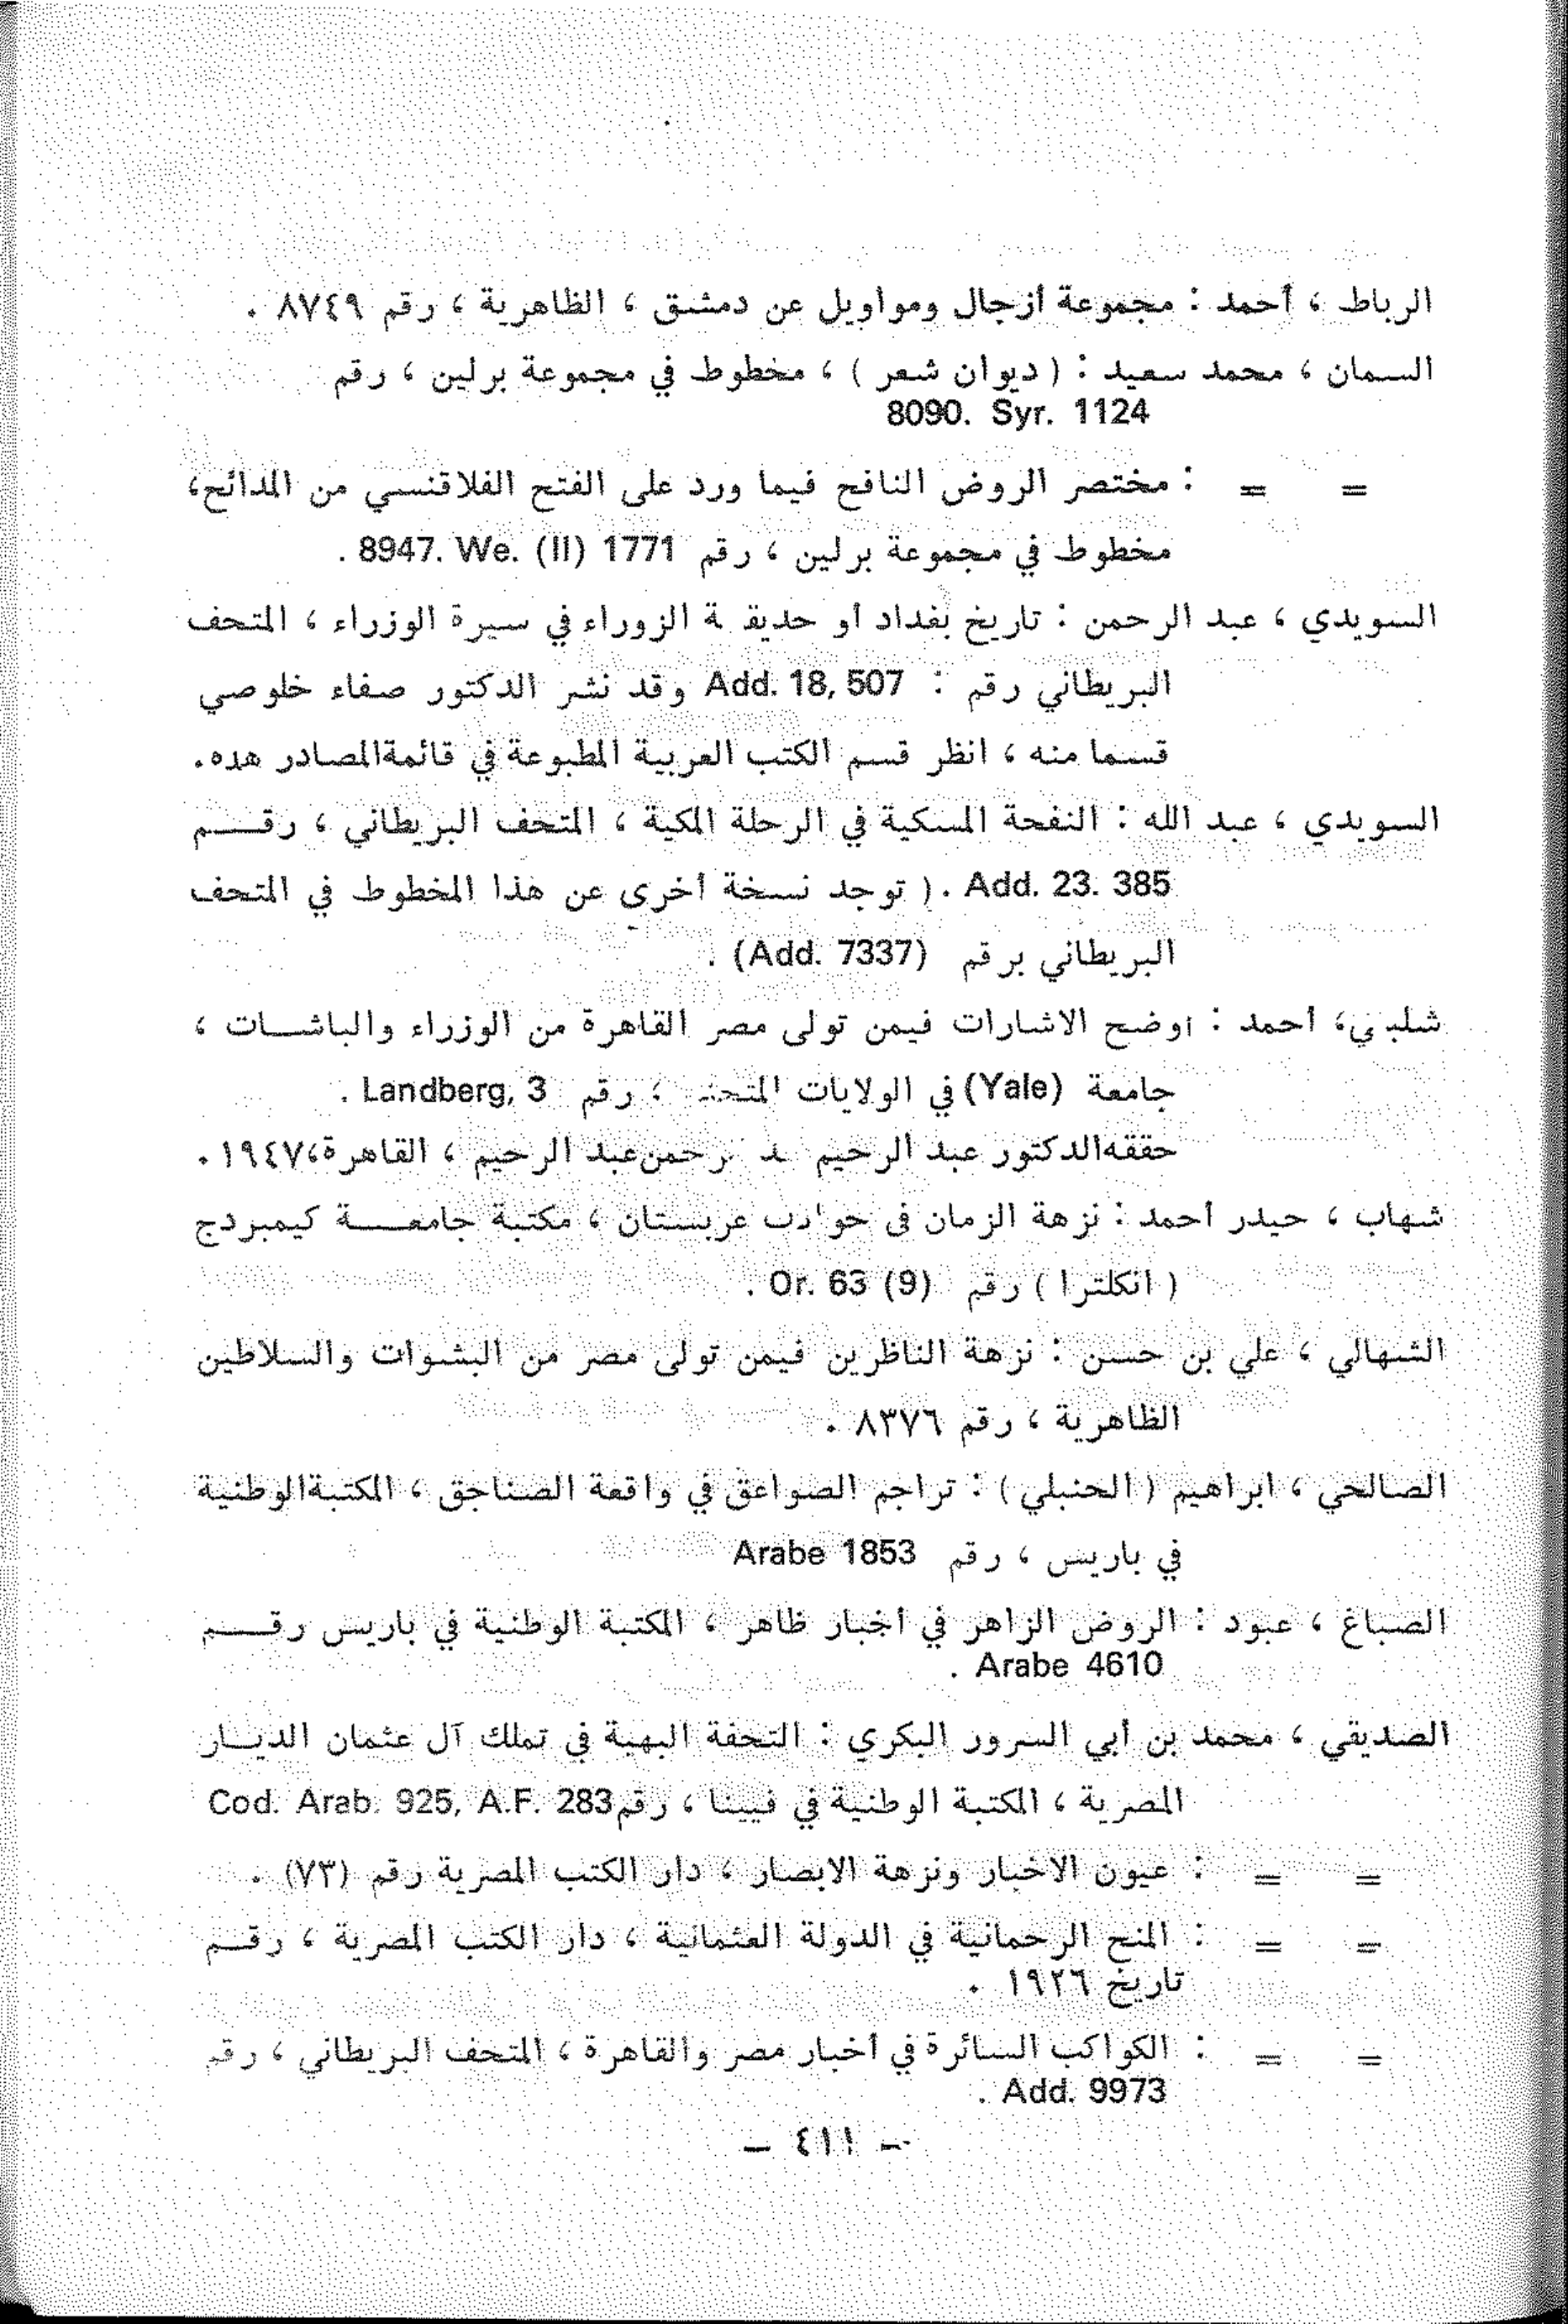 الرباط ، أحمد : مجموعة أزجال ومواويل عن دمشق ، الظاهرية ، رقم ٨٧٤٩ .
السمان ، محمد سعيد : ( ديوان شعر ) ، مخطوط في مجموعة برلين ، رقم
8090. Syr. 1124
= = : مختصر الروض النافح فيما ورد على الفتح الفلاقنسي من المدائح،
مخطوط في مجموعة برلين ، رقم 8947. We. (II) 1771 .
السويدي ، عبد الرحمن : تاريخ بغداد او حديقة الزوراء في سيرة الوزراء ، المتحف
البريطاني رقم : Add. 18, 507 وقد نشر الدكتور صفاء خلوصي
قسما منه ، انظر قسم الكتب العربية المطبوعة في قائمة المصادر هده.
السويدي ، عبد الله : النفحة المسكية في الرحلة المكية ، المتحف البريطاني ، رقم
Add. 23. 385 . ( توجد نسخة أخرى عن هذا المخطوط في المتحف
البريطاني برقم (Add. 7337) .
شلبي، أحمد : أوضح الاشارات فيمن تولى مصر القاهرة من الوزراء والباشات ،
جامعة (Yale) في الولايات ، رقم Landberg, 3 .
حققه الدكتور عبد الرحيم عبد الرحيم ، القاهرة،١٩٤٧ .
شهاب ، حيدر أحمد : نزهة الزمان في حوادث عربستان ، مكتبة جامعة كيمبردج
( انكلترا ) رقم Or. 63 (9) .
الشهالي ، علي بن حسن : نزهة الناظرين فيمن تولى مصر من البشوات والسلاطين
الظاهرية ، رقم ٨٣٧٦ .
الصالحي ، ابراهيم ( الحنبلي ) : تراجم الصواعق في واقعة الصناجق ، المكتبة الوطنية
في باريس ، رقم Arabe 1853
الصباغ ، عبود : الروض الزاهر في أخبار ظاهر ، المكتبة الوطنية في باريس رقم
Arabe 4610 .
الصديقي ، محمد بن أبي السرور البكري : التحفة البهية في تملك آل عثمان الديار
المصرية ، المكتبة الوطنية في فيينا ، رقم Cod. Arab. 925, A.F. 283
= = : عيون الاخبار ونزهة الابصار ، دار الكتب المصرية رقم (٧٣) .
= = : المنح الرحمانية في الدولة العثمانية ، دار الكتب المصرية ، رقم
تاريخ ١٩٢٦ .
= = : الكواكب السائرة في أخبار مصر والقاهرة ، المتحف البريطاني ، رقم
Add. 9973 .
— ٤١١ —